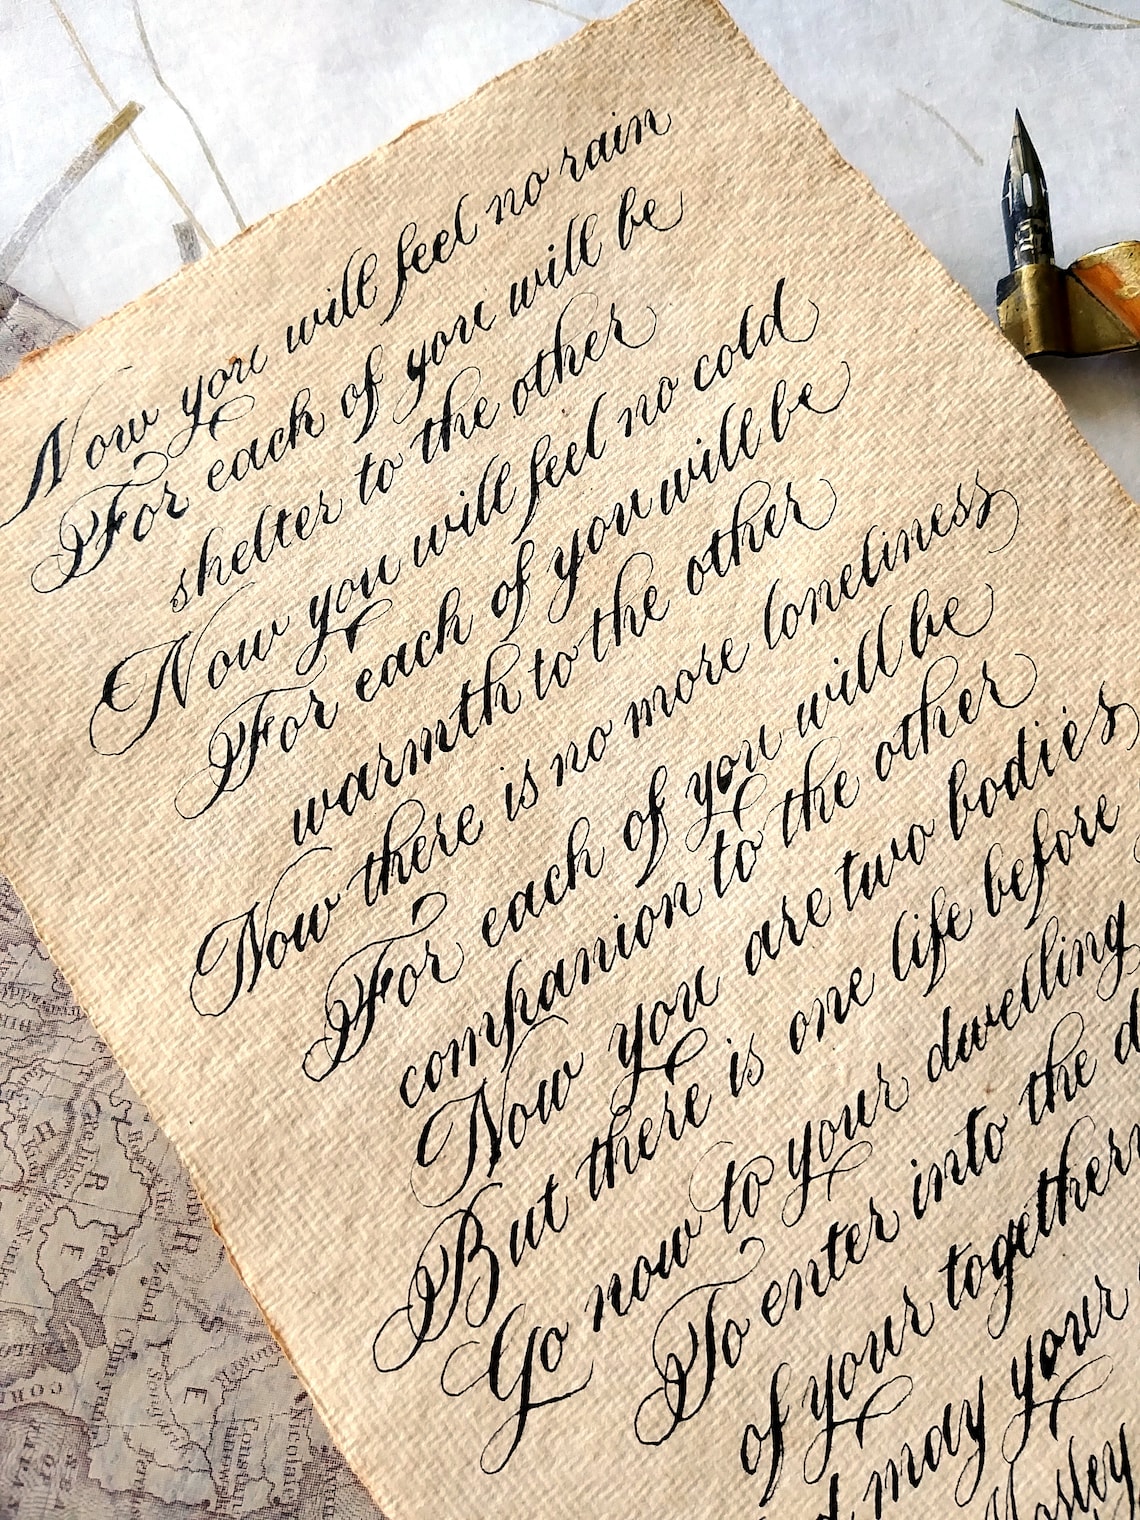 Now you will feel no rain
For each of you will be
shelter to the other
Now you will feel no cold
For each of you will be
warmth to the other
Now there is no more loneliness
For each of you will be
companion to the other
Now you are two bodies
But there is one life before
Go now to your dwelling
To enter into the
of your together
may your